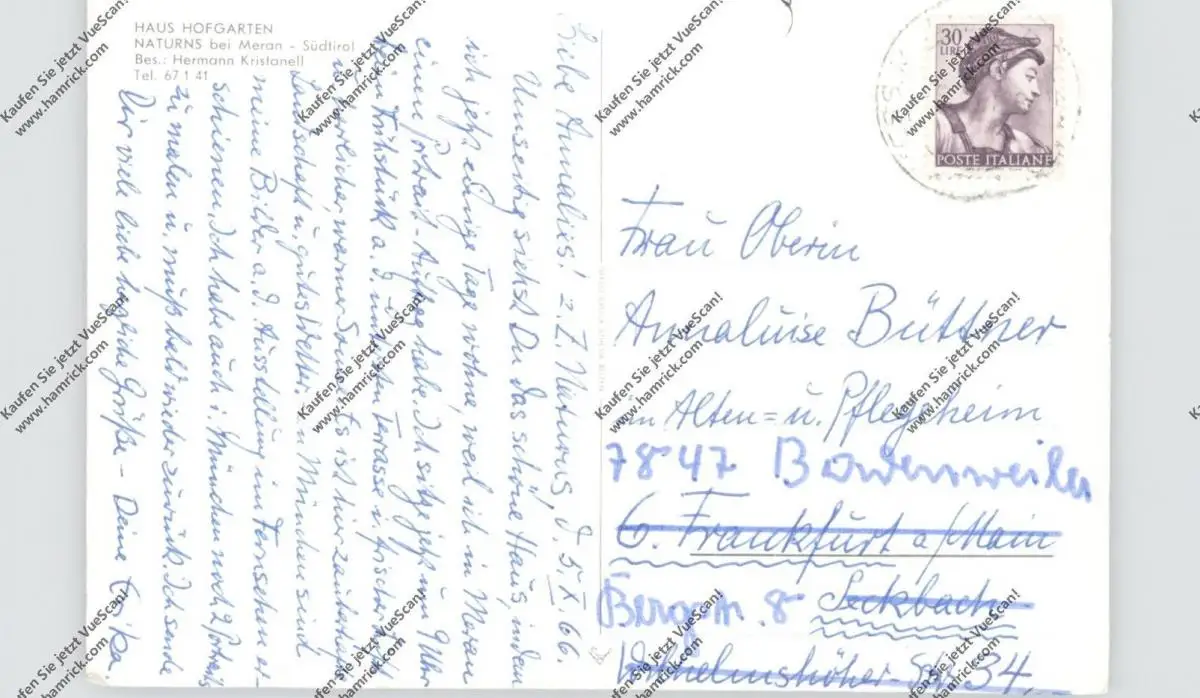 HAUS HOFGARTEN
NATURNS bei Meran - Südtirol
Bes.: Hermann Kristanell
Tel. 67 1 41
Liebe Annalies! z. Z. Naturns, d. 5. X. 66.
Umseitig siehst Du das schöne Haus, in dem
ich jetzt einige Tage wohne, weil ich in Meran
einen Portrait-Auftrag habe. Ich sitze jetzt um 9 Uhr
beim Frühstück a. d. Terrasse i. frischer Luft
u. herrlicher, warmer Sonne. Es ist hier zauberhafte
Landschaft u. gutes Wetter. In München sind
meine Bilder a. d. Ausstellung im Fernsehen er-
schienen. Ich habe auch i. München noch 2 Portraits
zu malen u. muß bald wieder zurück. Ich sende
Dir viele liebe herzliche Grüße - Deine Erika.
30
LIRE
POSTE ITALIANE
Frau Oberin
Annaluise Büttner
im Alten= u. Pflegeheim
7847 Badenweiler
6. Frankfurt a/Main
Bergstr. 8 Seckbach
Wilhelmshöher-Str. 34,
Kaufen Sie jetzt VueScan!
www.hamrick.com